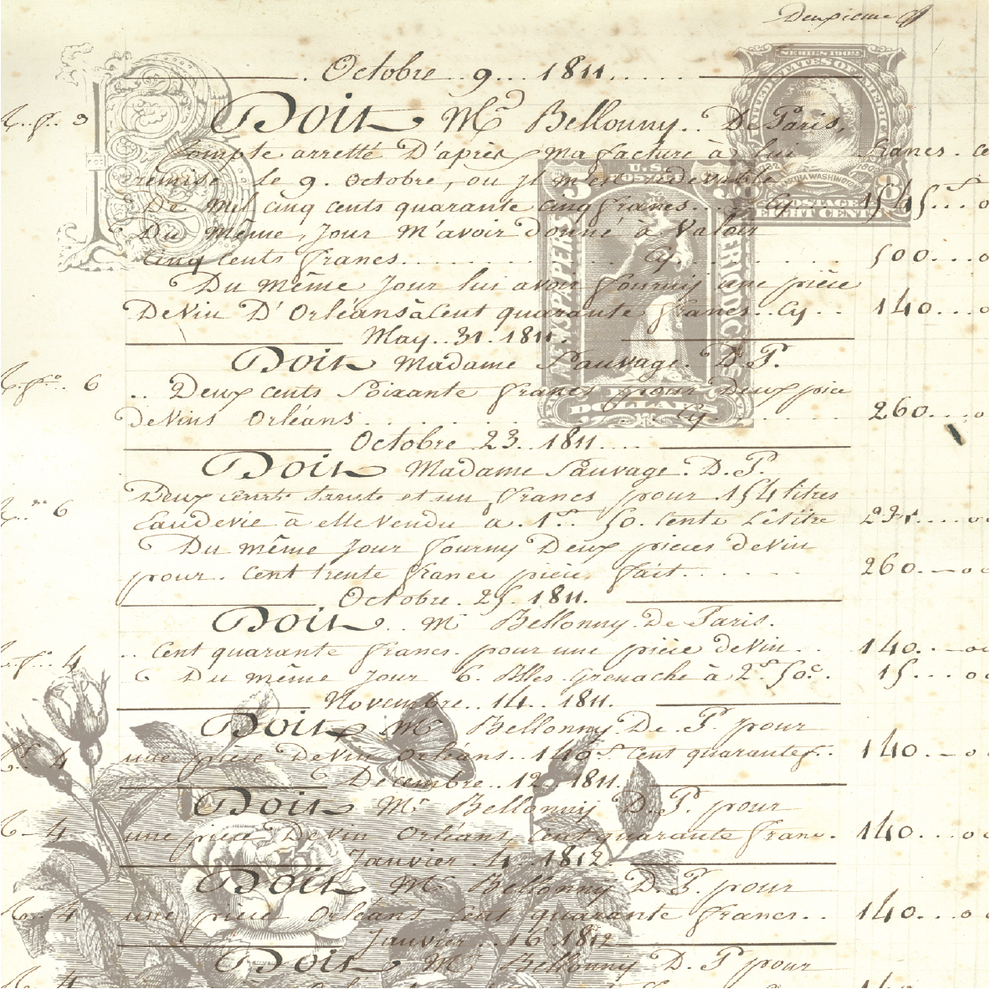 Deuxieme
Octobre 9... 1811.
Doit Mr Bellonny.. De Paris,
Compte arretté D'après ma facture à lui francs. ce
remise le 9. Octobre, ou il m'est devable
De Mil cinq cents quarante cinq francs.. Cy. 1545...o
Du Même, Jour M'avoir donné à Valoir
Cinq Cents francs........ Cy...... 500...o
Du Même Jour lui avoir fourny une pièce
De Vin D'Orléans à Cent quarante francs.. Cy.. 140...o
May. 31. 1811.
Doit Madame Sauvage. D. P.
6 .. Deux cents Soixante francs pour Deux pièce
de Vins Orléans........ Cy.... 260....o
Octobre 23. 1811.
Doit Madame Sauvage. D. P.
Deux cents trente et un francs pour 154 litres
6 Eau devie à elle Vendu a 1f. 50. Cents Le litre 231....oo
Du même Jour fourny Deux pieces de Vin
pour. Cent trente francs pièce. fait...... 260.—o
Octobre. 25. 1811.
Doit.. Mr Bellonny. De Paris.
4 .. Cent quarante francs. pour une pièce de Vin... 140..—oo
Du même Jour 6. Blles Grenache à 2f. 50c.. 15....oo
Novembre. 14... 1811.
Doit Mr Bellonny. De P pour
4 une pièce de Vin Orléans. 140f Cent quarante f. 140.—o
Decembre.. 12. 1811.
Doit Mr Bellonny D. P. pour
4 une pièce De Vin Orléans, Cent quarante franc. 140...oo
Janvier. 4. 1812
Doit Mr Bellonny D. P. pour
4 une pièce Orléans Cent quarante francs... 140...oo
Janvier.. 16. 1812
Doit Mr Bellonny D. P pour
SERIES 1902
UNITED STATES OF AMERICA
MARTHA WASHINGTON
8 8
POSTAGE
EIGHT CENTS
U.S.
POSTAGE
NEWSPAPERS
PERIODICALS
DOLLARS